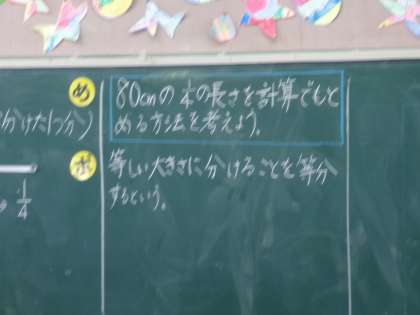 め
80cmの
の長さを計算でもと
める方法を考えよう。
分けた1つ分)
ポ
等しい大きさに分けることを等分
するという。
1/4